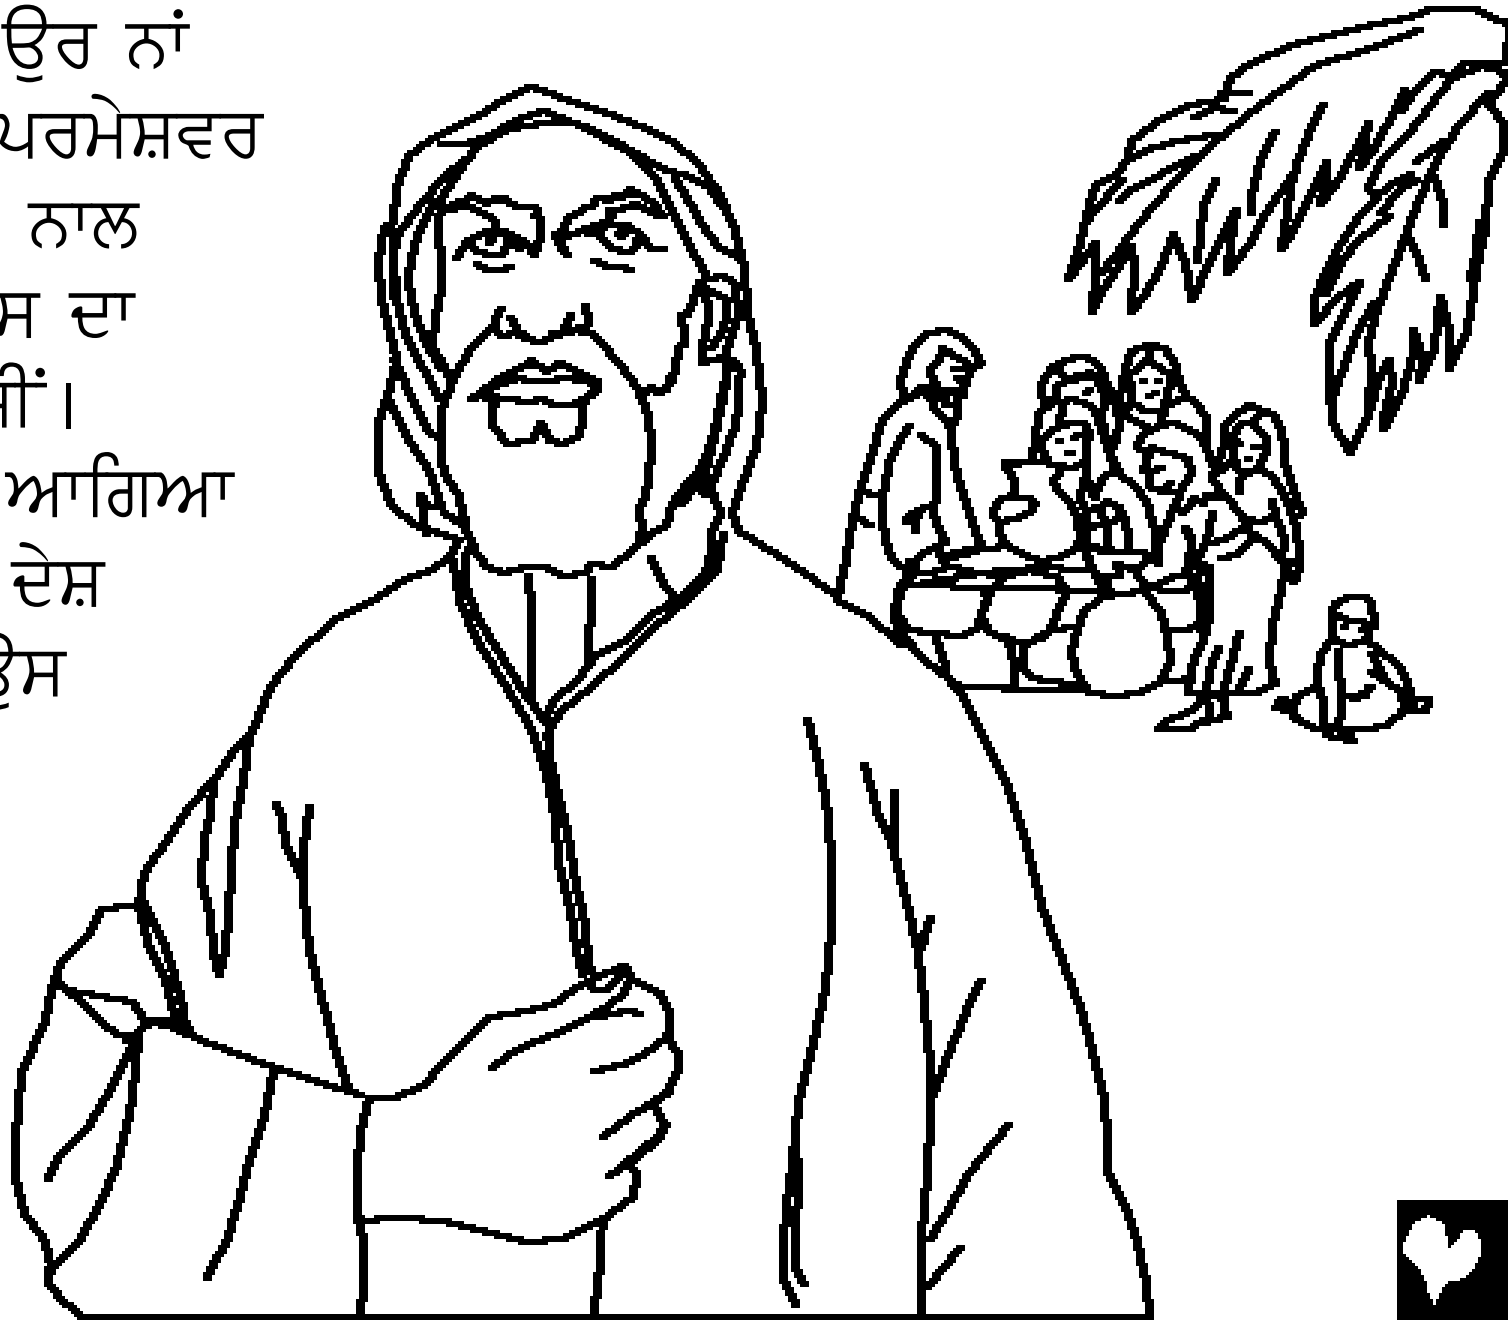 ਉਰ ਨਾਂ
ਪਰਮੇਸ਼ਵਰ
ਨਾਲ
ਸ ਦਾ
ਸੀਂ।
ਆਗਿਆ
ਦੇਸ਼
ਉਸ